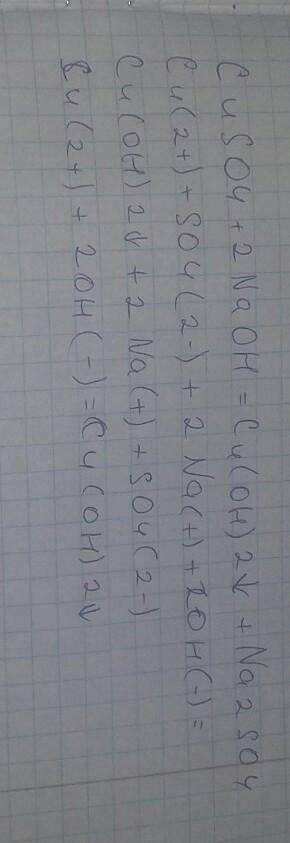 CuSO4 + 2NaOH = Cu(OH)2↓ + Na2SO4
Cu(2+) + SO4(2-) + 2Na(+) + 2OH(-) =
Cu(OH)2↓ + 2Na(+) + SO4(2-)
Cu(2+) + 2OH(-) = Cu(OH)2↓